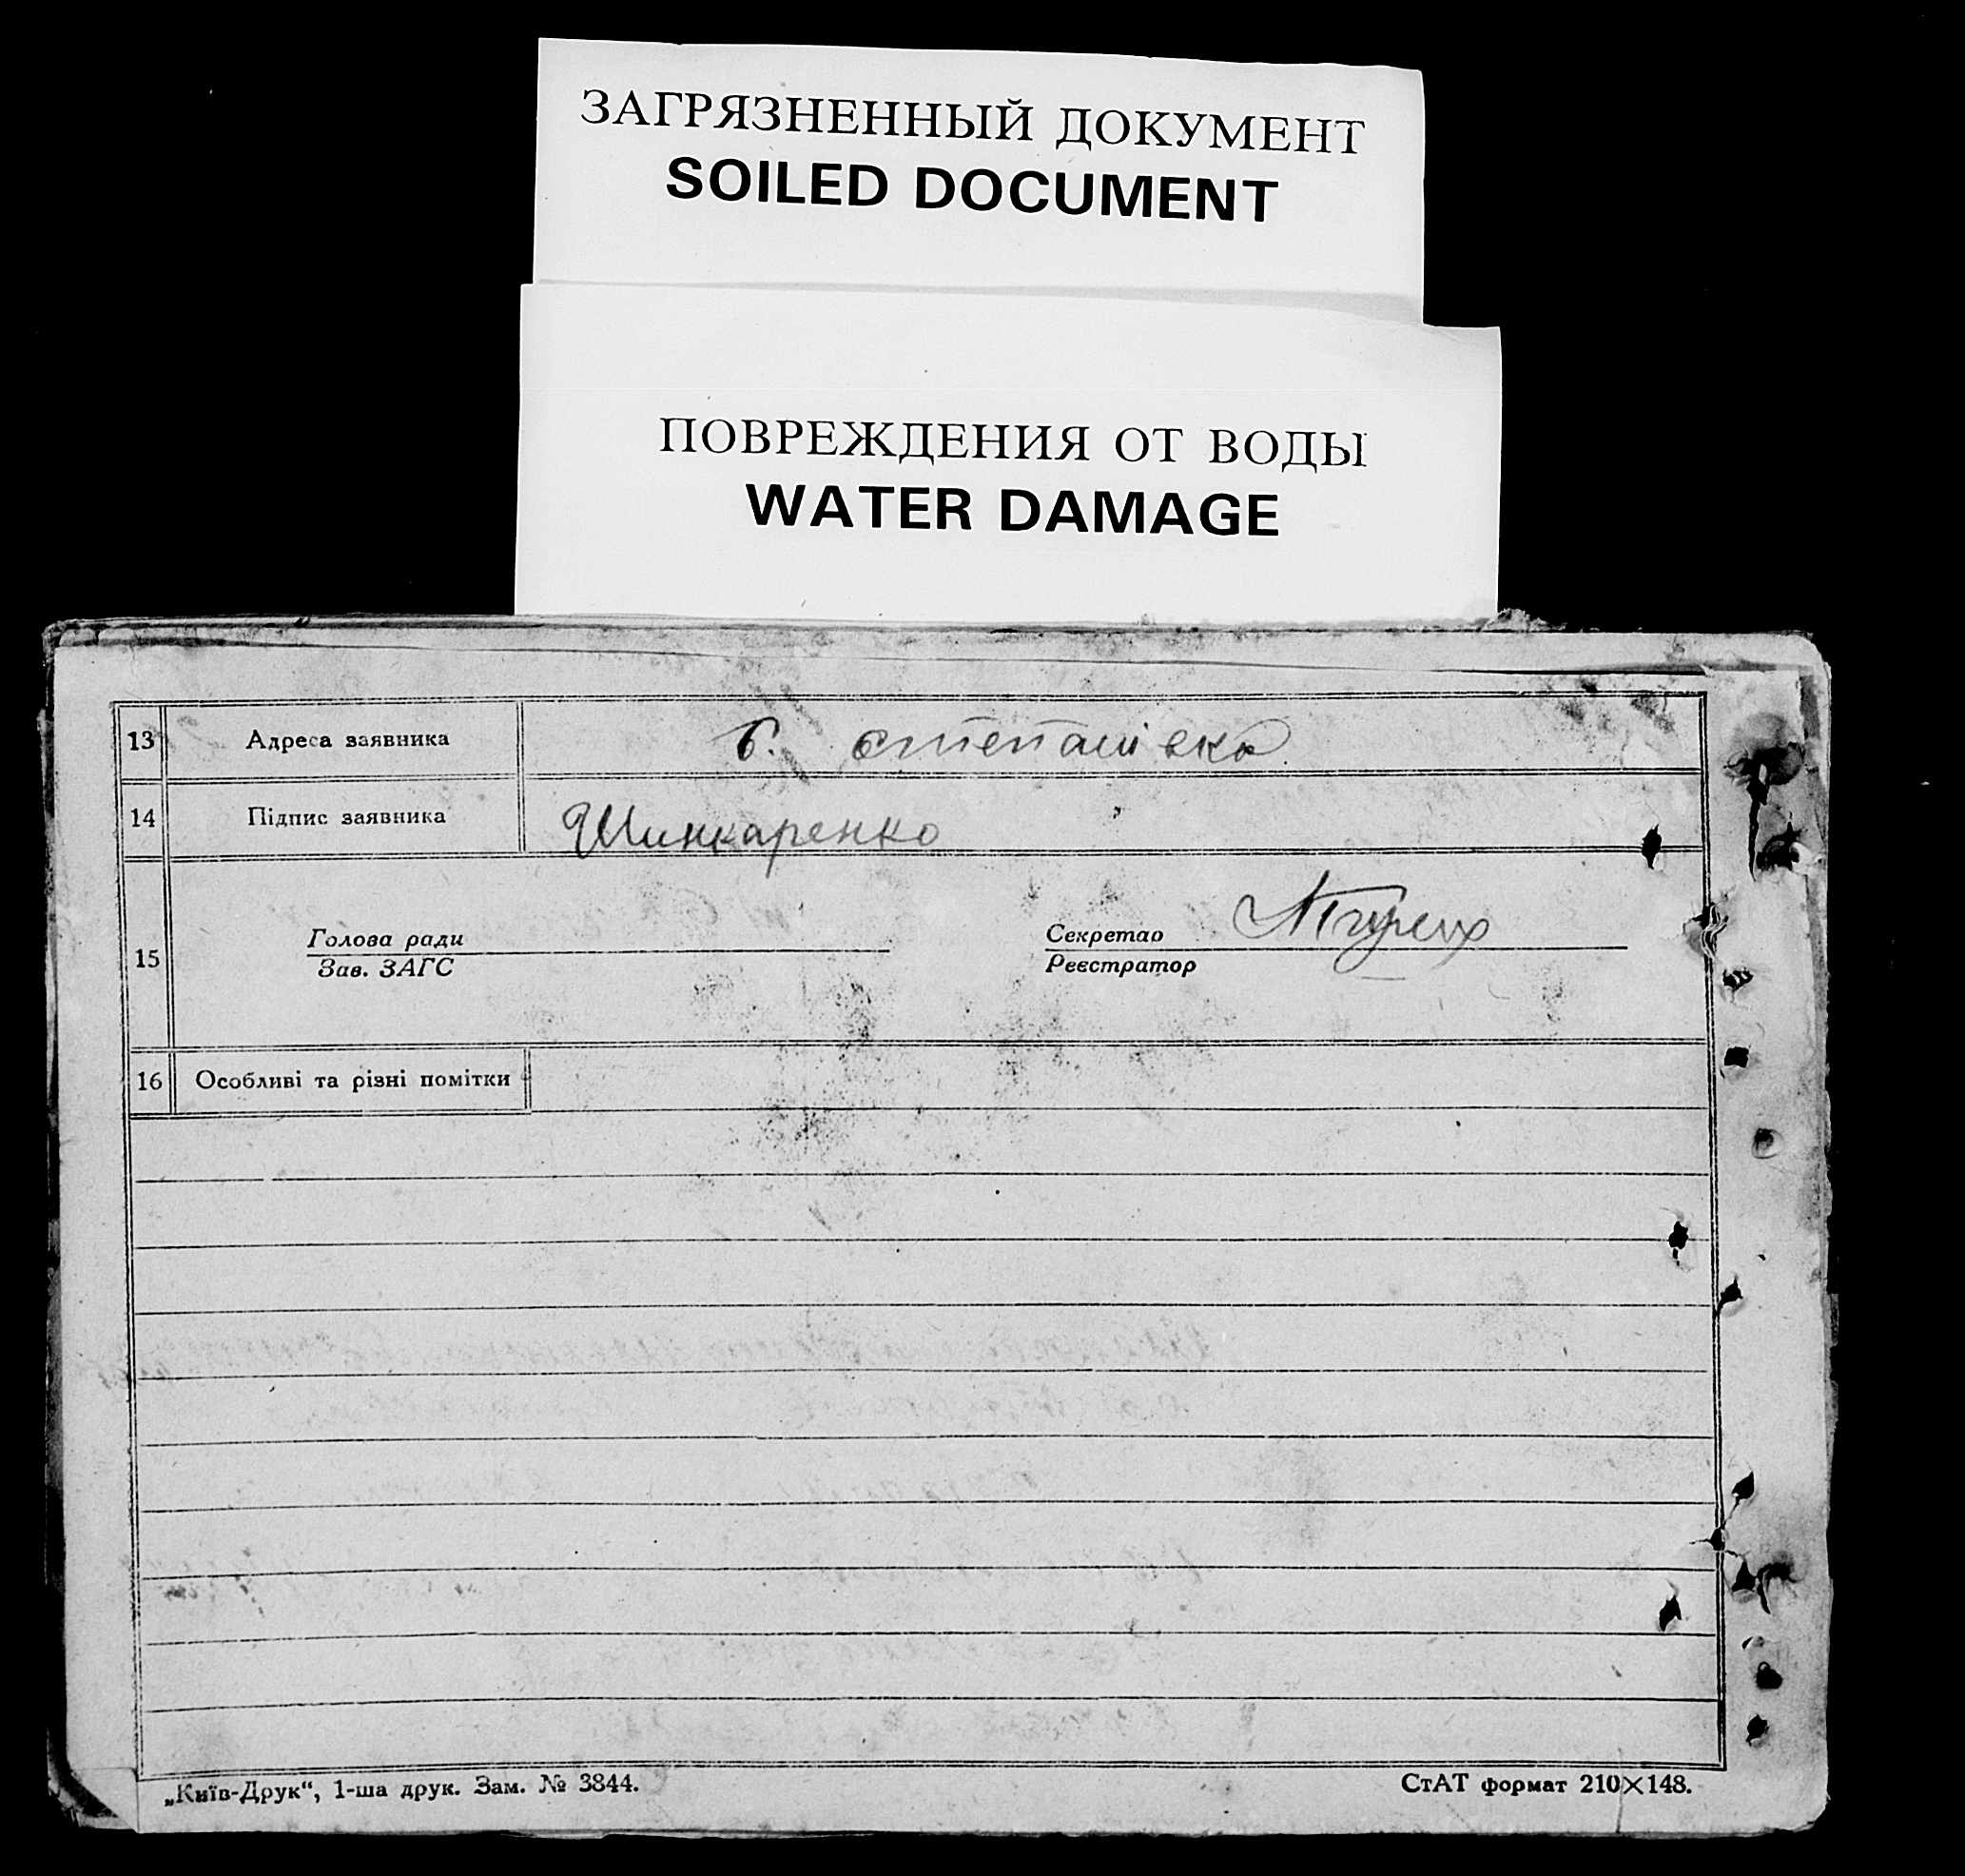 ЗАГРЯЗНЕННЫЙ ДОКУМЕНТ
SOILED DOCUMENT
ПОВРЕЖДЕНИЯ ОТ ВОДЫ
WATER DAMAGE
13 Адреса заявника с. степанівка
14 Підпис заявника Шинкаренко
15 Голова ради Секретар
Зав. ЗАГС Реєстратор
16 Особливі та різні помітки
„Київ-Друк“, 1-ша друк. Зам. № 3844. СтАТ формат 210×148.